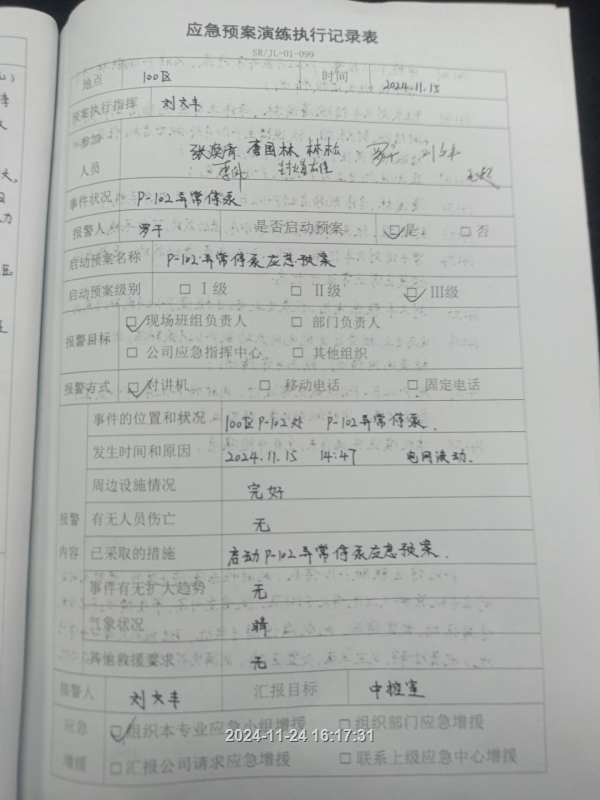 应急预案演练执行记录表
SR/JL-01-099
地点 100区 时间 2024.11.15
预案执行指挥 刘大丰
参加人员 张焕青 唐国林 林松 罗干
事件状况 P-102异常停泵
报警人 罗干 是否启动预案 ☑是 □否
启动预案名称 P-102异常停泵应急预案
启动预案级别 □Ⅰ级 □Ⅱ级 ☑Ⅲ级
报警目标 ☑现场班组负责人 □部门负责人
□公司应急指挥中心 □其他组织
报警方式 ☑对讲机 □移动电话 □固定电话
报警内容
事件的位置和状况 100区P-102处 P-102异常停泵.
发生时间和原因 2024.11.15 14:47 电网波动.
周边设施情况 完好
有无人员伤亡 无
已采取的措施 启动P-102异常停泵应急预案.
事件有无扩大趋势 无
气象状况 晴
其他救援要求 无
报警人 刘大丰 汇报目标 中控室
应急增援 ☑组织本专业应急小组增援 □组织部门应急增援
2024-11-24 16:17:31
□汇报公司请求应急增援 □联系上级应急中心增援